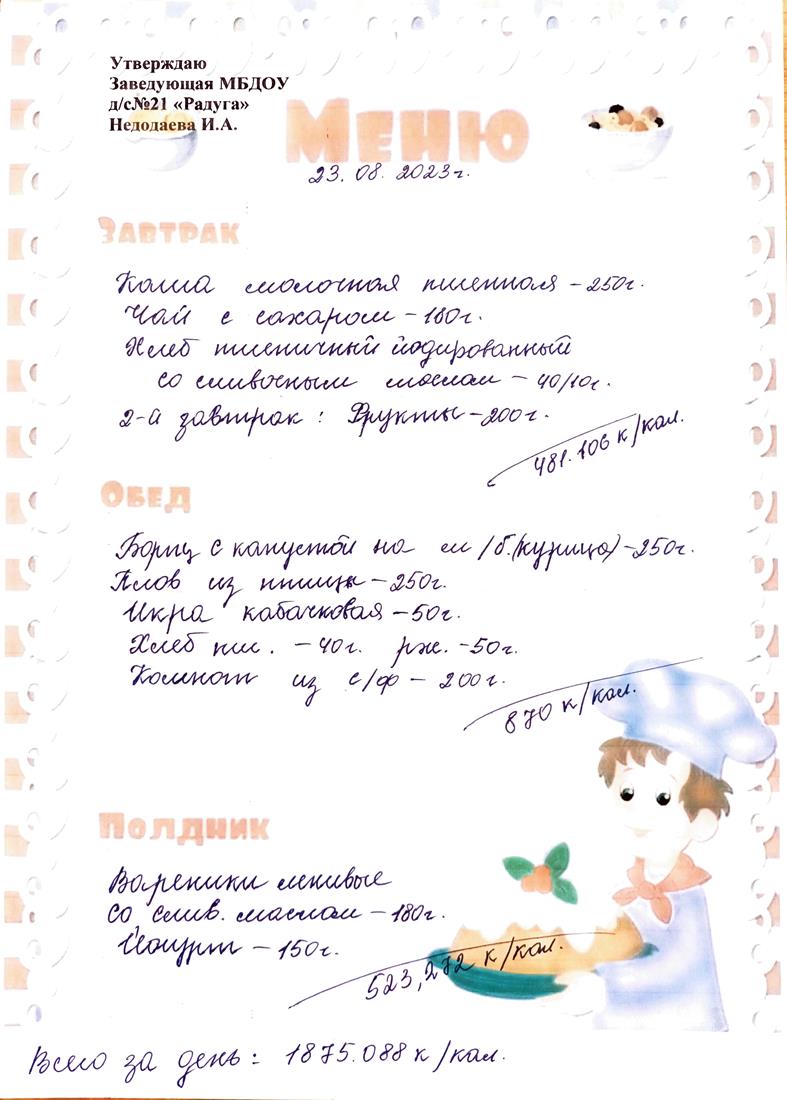 Утверждаю
Заведующая МБДОУ
д/с№21 «Радуга»
Недодаева И.А.
Меню
23. 08. 2023г.
Завтрак
Каша молочная пшенная – 250г.
Чай с сахаром – 180г.
Хлеб пшеничный йодированный
со сливочным маслом – 40/10г.
2-й завтрак : Фрукты – 200г.
481.106 к/кал.
Обед
Борщ с капустой на м/б.(курица) – 250г.
Плов из птицы – 250г.
Икра кабачковая – 50г.
Хлеб пш. – 40г. рж. – 50г.
Компот из с/ф – 200г.
870 к/кал.
Полдник
Вареники ленивые
со слив. маслом – 180г.
Йогурт – 150г.
523,272 к/кал.
Всего за день : 1875.088 к/кал.